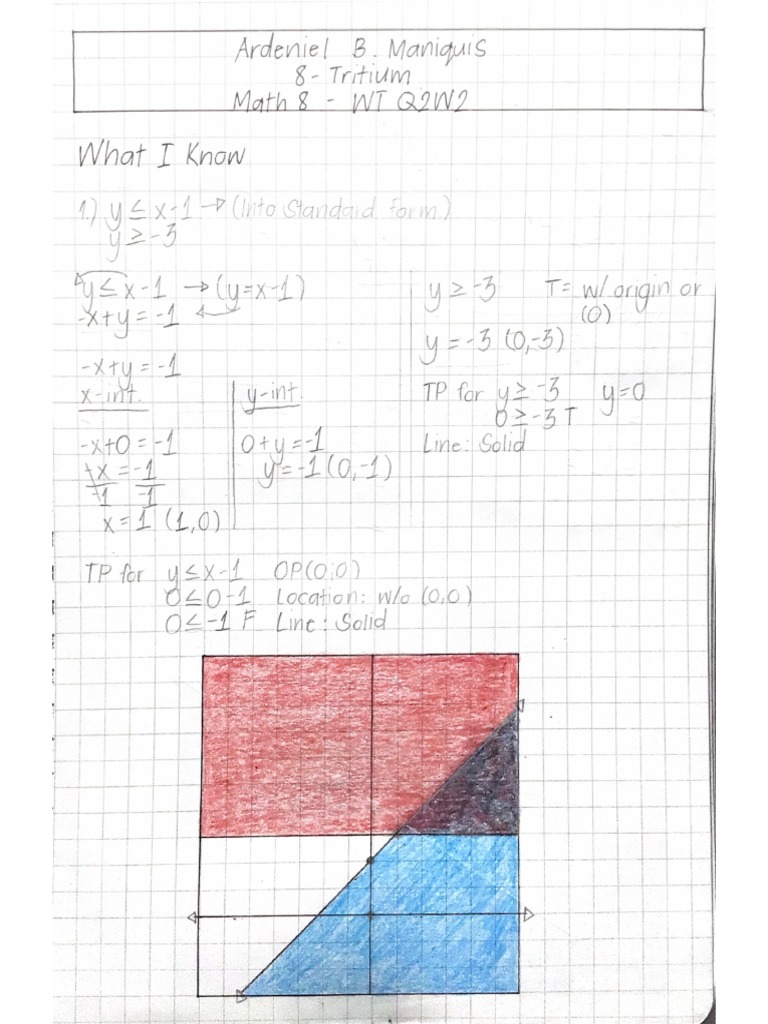 Ardeniel B. Maniquis
8 - Tritium
Math 8 - WT Q2W2
What I Know
1.) y ≤ x-1 → (Into Standard Form)
y ≥ -3
y ≤ x-1 → (y=x-1)
-x+y = -1 ←
-x+y = -1
x-int.
-x+0 = -1
-x = -1
-1 -1
x = 1 (1,0)
y-int.
0+y = -1
y = -1 (0,-1)
y ≥ -3 T = w/ origin or
(0)
y = -3 (0,-3)
TP for y ≥ -3 y=0
0 ≥ -3 T
Line: Solid
TP for y ≤ x-1 OP(0,0)
0 ≤ 0-1 Location: w/o (0,0)
0 ≤ -1 F Line: Solid